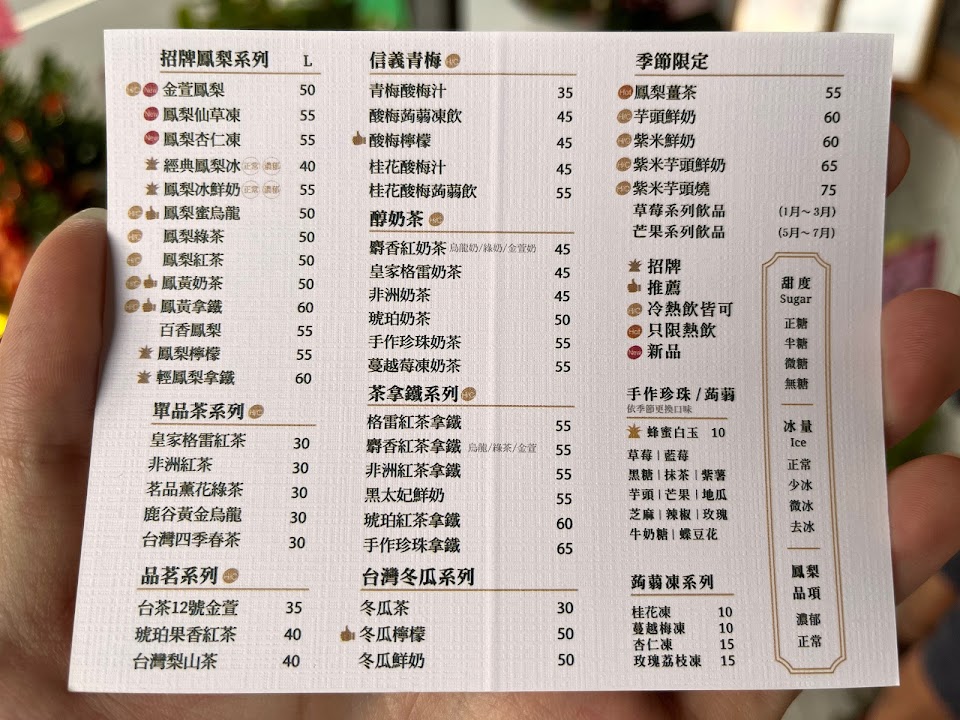 招牌鳳梨系列 L
H/C New 金萱鳳梨 50
New 鳳梨仙草凍 55
New 鳳梨杏仁凍 55
經典鳳梨冰 正常 濃郁 40
鳳梨冰鮮奶 正常 濃郁 55
H/C 鳳梨蜜烏龍 50
H/C 鳳梨綠茶 50
H/C 鳳梨紅茶 50
H/C 鳳黃奶茶 50
H/C 鳳黃拿鐵 60
百香鳳梨 55
鳳梨檸檬 55
輕鳳梨拿鐵 60
單品茶系列 H/C
皇家格雷紅茶 30
非洲紅茶 30
茗品薰花綠茶 30
鹿谷黃金烏龍 30
台灣四季春茶 30
品茗系列 H/C
台茶12號金萱 35
琥珀果香紅茶 40
台灣梨山茶 40
信義青梅 H/C
青梅酸梅汁 35
酸梅蒟蒻凍飲 45
酸梅檸檬 45
桂花酸梅汁 45
桂花酸梅蒟蒻飲 55
醇奶茶 H/C
麝香紅奶茶 烏龍奶/綠奶/金萱奶 45
皇家格雷奶茶 45
非洲奶茶 45
琥珀奶茶 50
手作珍珠奶茶 55
蔓越莓凍奶茶 55
茶拿鐵系列 H/C
格雷紅茶拿鐵 55
麝香紅茶拿鐵 烏龍/綠茶/金萱 55
非洲紅茶拿鐵 55
黑太妃鮮奶 55
琥珀紅茶拿鐵 60
手作珍珠拿鐵 65
台灣冬瓜系列
冬瓜茶 30
冬瓜檸檬 50
冬瓜鮮奶 50
季節限定
Hot 鳳梨薑茶 55
H/C 芋頭鮮奶 60
H/C 紫米鮮奶 60
H/C 紫米芋頭鮮奶 65
H/C 紫米芋頭燒 75
草莓系列飲品 (1月～3月)
芒果系列飲品 (5月～7月)
招牌
推薦
H/C 冷熱飲皆可
Hot 只限熱飲
New 新品
手作珍珠/蒟蒻
依季節更換口味
蜂蜜白玉 10
草莓|藍莓
黑糖|抹茶|紫薯
芋頭|芒果|地瓜
芝麻|辣椒|玫瑰
牛奶糖|蝶豆花
蒟蒻凍系列
桂花凍 10
蔓越梅凍 10
杏仁凍 15
玫瑰荔枝凍 15
甜度
Sugar
正糖
半糖
微糖
無糖
冰量
Ice
正常
少冰
微冰
去冰
鳳梨
品項
濃郁
正常